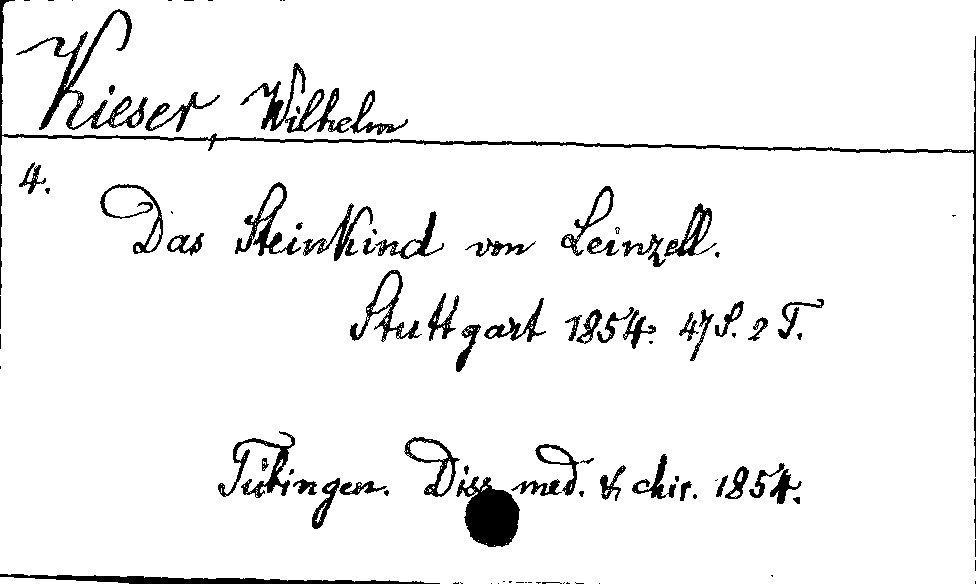 Kieser, Wilhelm
4.
Das Steinkind von Leinzell.
Stuttgart 1854: 47 S. 2 T.
Tübingen. Diss. med. & chir. 1854.